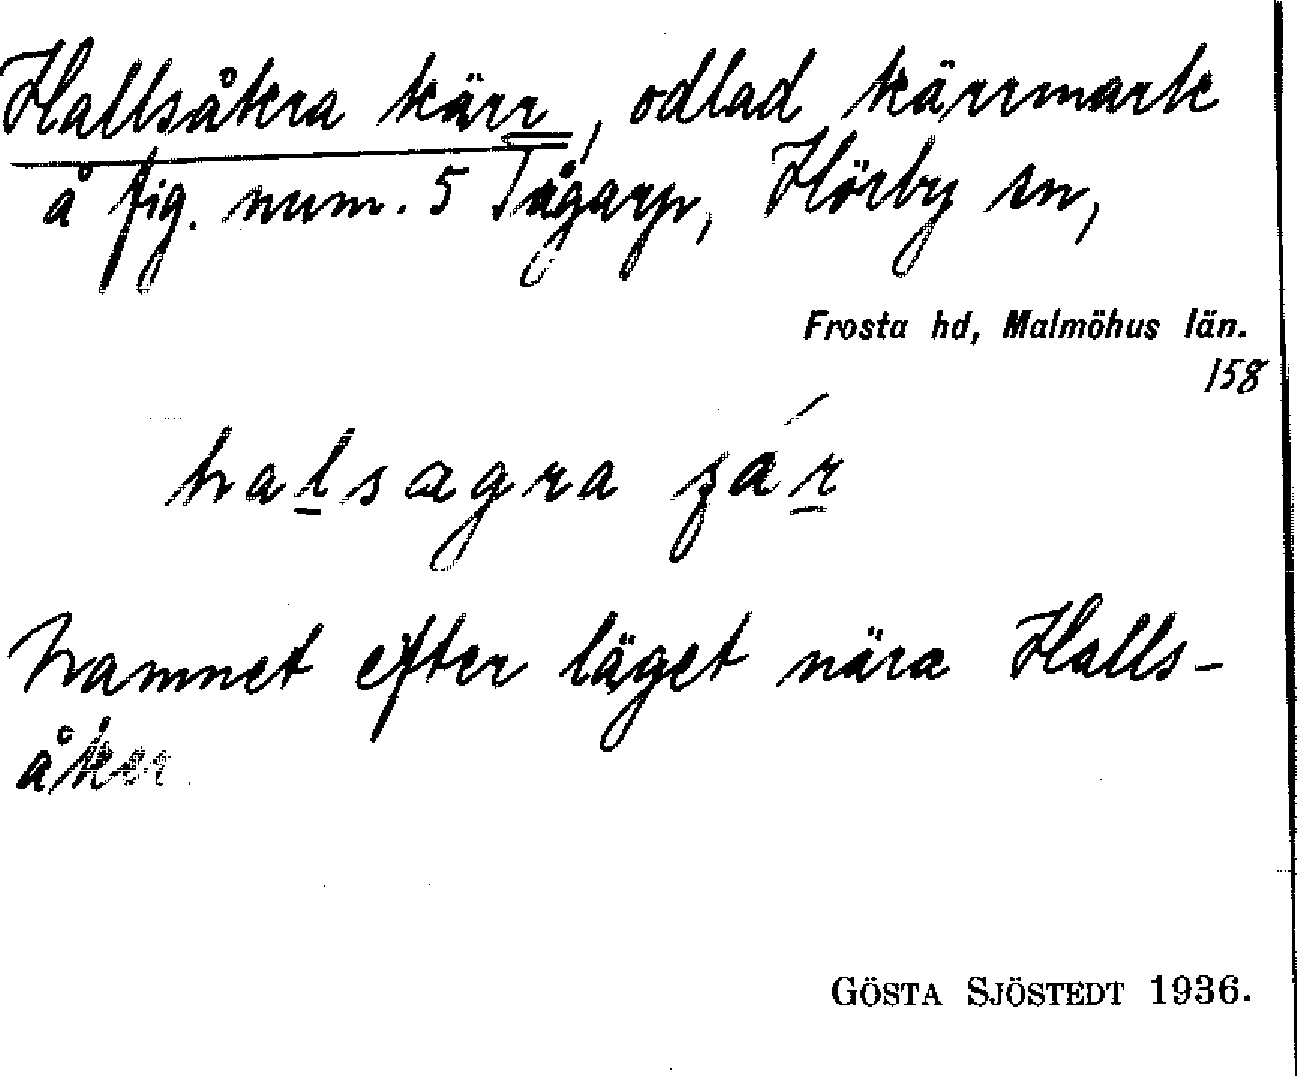 Hallsåkra kärr, odlad kärrmark
å fig. num. 5 Tågarp, Hörby sn,
Frosta hd, Malmöhus län.
158
halsagra
Namnet efter läget nära Halls-
åker
GÖSTA SJÖSTEDT 1936.